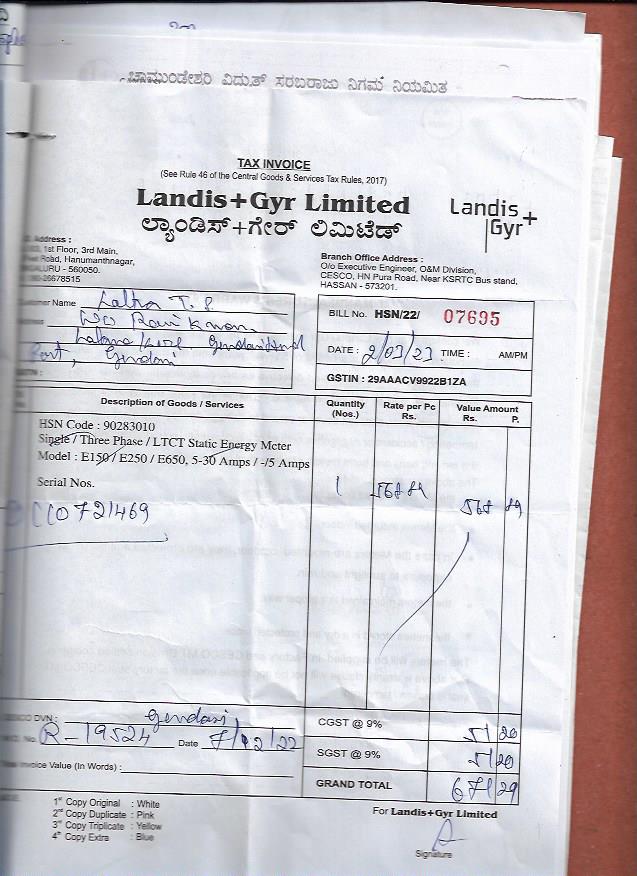 ಚಾಮುಂಡೇಶ್ವರಿ ವಿದ್ಯುತ್ ಸರಬರಾಜು ನಿಗಮ ನಿಯಮಿತ
TAX INVOICE
(See Rule 46 of the Central Goods & Services Tax Rules, 2017)
Landis+Gyr Limited
ಲ್ಯಾಂಡಿಸ್+ಗೇರ್ ಲಿಮಿಟೆಡ್
Landis+
Gyr
Address :
1st Floor, 3rd Main,
Road, Hanumanthnagar,
- 560050.
26678515
Branch Office Address :
O/o Executive Engineer, O&M Division,
CESCO, HN Pura Road, Near KSRTC Bus stand,
HASSAN - 573201.
Customer Name Latha T.
Gendasi
BILL No. HSN/22/ 07695
DATE : 2/03/23 TIME : AM/PM
GSTIN : 29AAACV9922B1ZA
Description of Goods / Services
Quantity (Nos.)
Rate per Pc Rs.
Value Amount Rs. P.
HSN Code : 90283010
Single / Three Phase / LTCT Static Energy Meter
Model : E150 / E250 / E650, 5-30 Amps / -/5 Amps
Serial Nos.
1 568 89 568 89
CC0721469
DVN : Gendasi
No. R-19524 Date 7/12/22
Invoice Value (In Words) :
CGST @ 9% 51 20
SGST @ 9% 51 20
GRAND TOTAL 671 29
1st Copy Original : White
2nd Copy Duplicate : Pink
3rd Copy Triplicate : Yellow
4th Copy Extra : Blue
For Landis+Gyr Limited
Signature